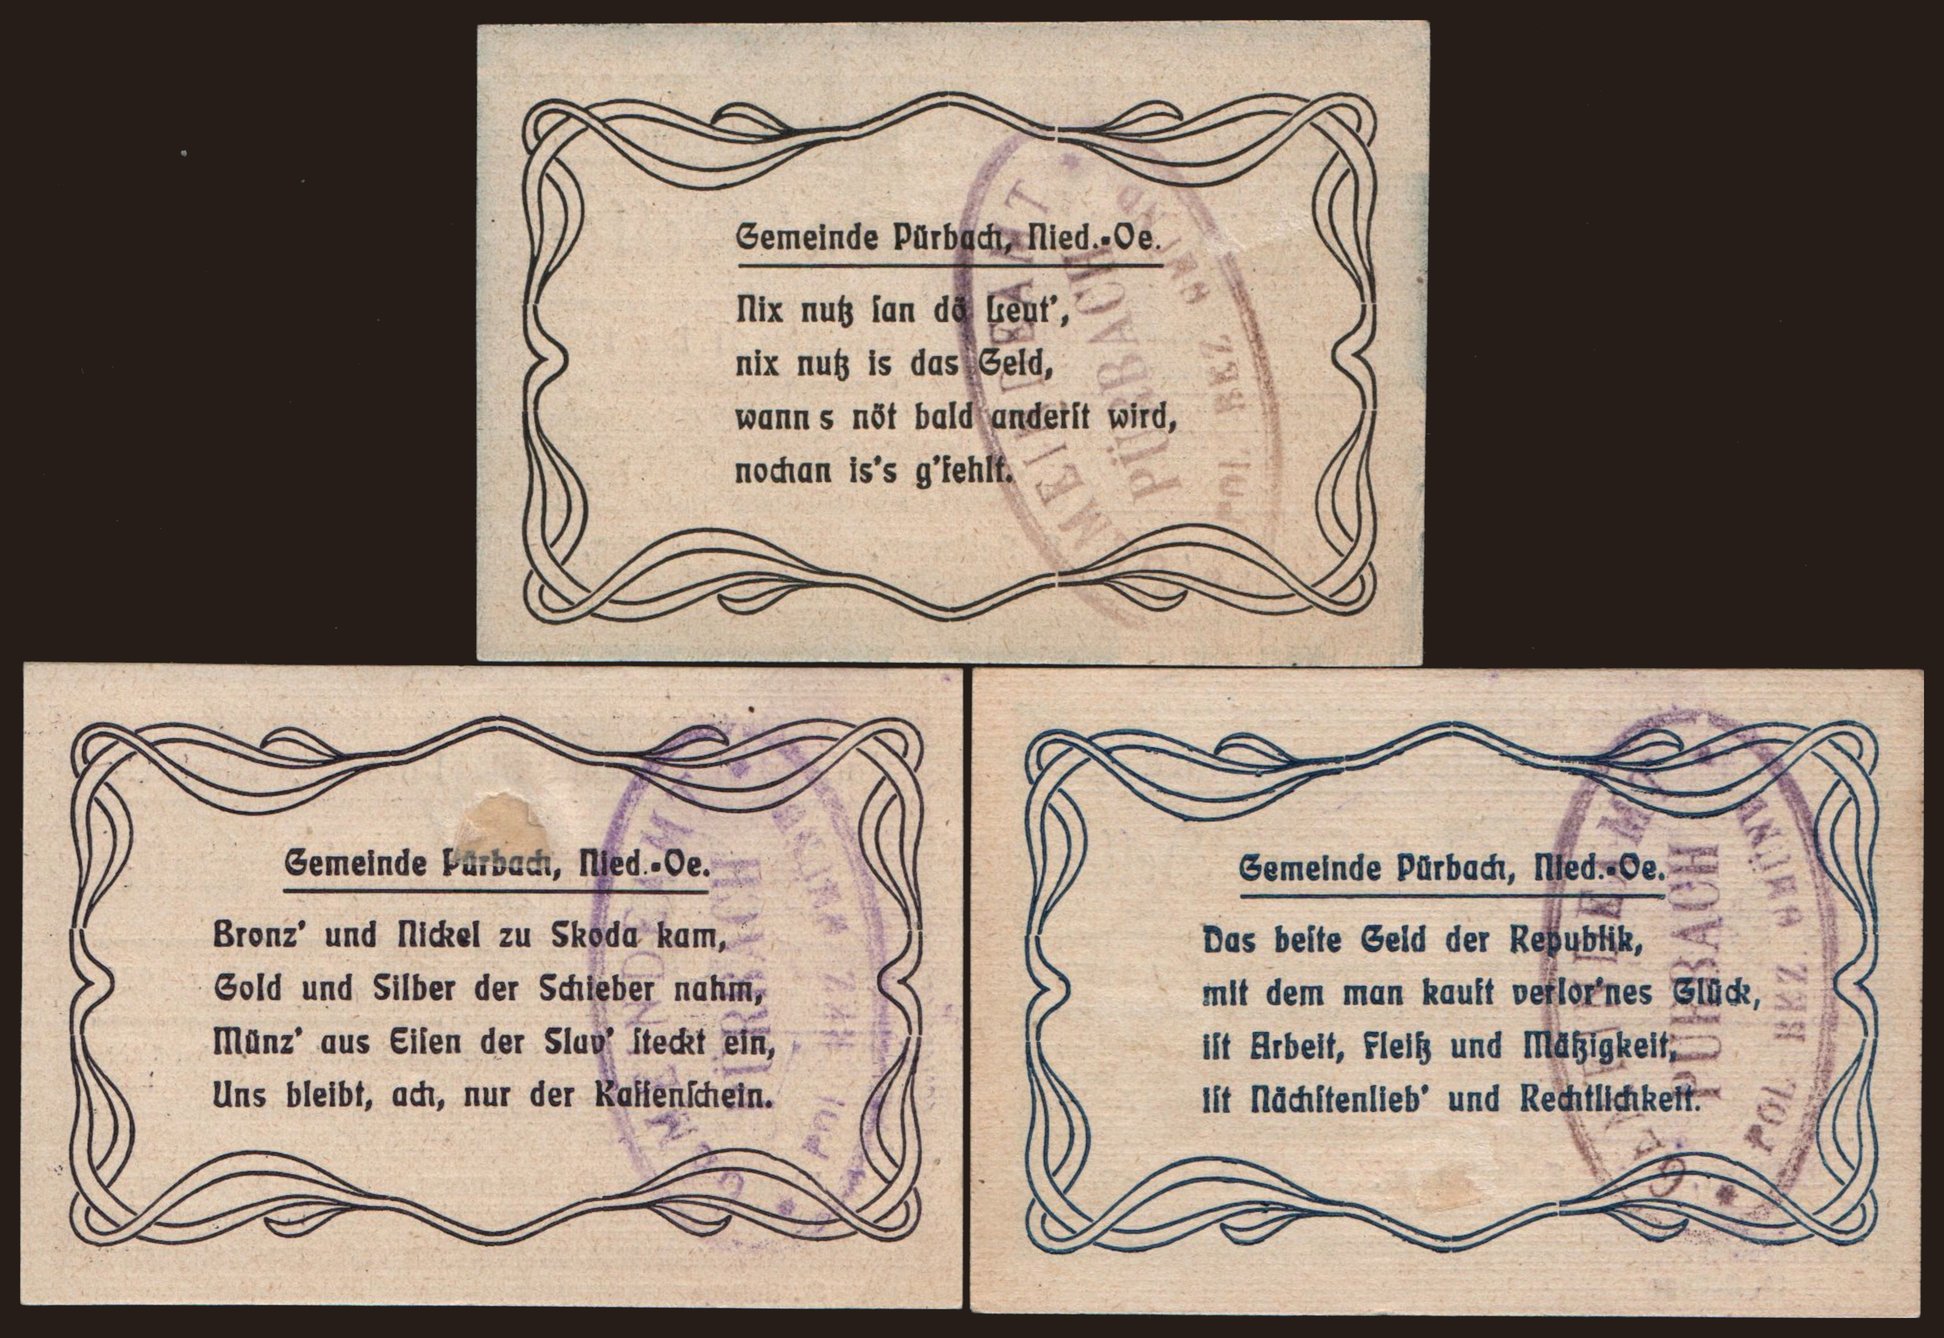 Gemeinde Pürbach, Nied.-Oe.
Nix nutz san dö Leut',
nix nutz is das Geld,
wann s nöt bald anderst wird,
nochan is's g'fehlt.
GEMEINDEAMT
PÜRBACH
POL. BEZ. GMÜND
Gemeinde Pürbach, Nied.-Oe.
Bronz' und Nickel zu Skoda kam,
Gold und Silber der Schieber nahm,
Münz' aus Eisen der Slav' steckt ein,
Uns bleibt, ach, nur der Kassenschein.
GEMEINDEAMT
PÜRBACH
POL. BEZ. GMÜND
Gemeinde Pürbach, Nied.-Oe.
Das beste Geld der Republik,
mit dem man kauft verlor'nes Glück,
ist Arbeit, Fleiß und Mäßigkeit,
ist Nächstenlieb' und Rechtlichkeit.
GEMEINDEAMT
PÜRBACH
POL. BEZ. GMÜND